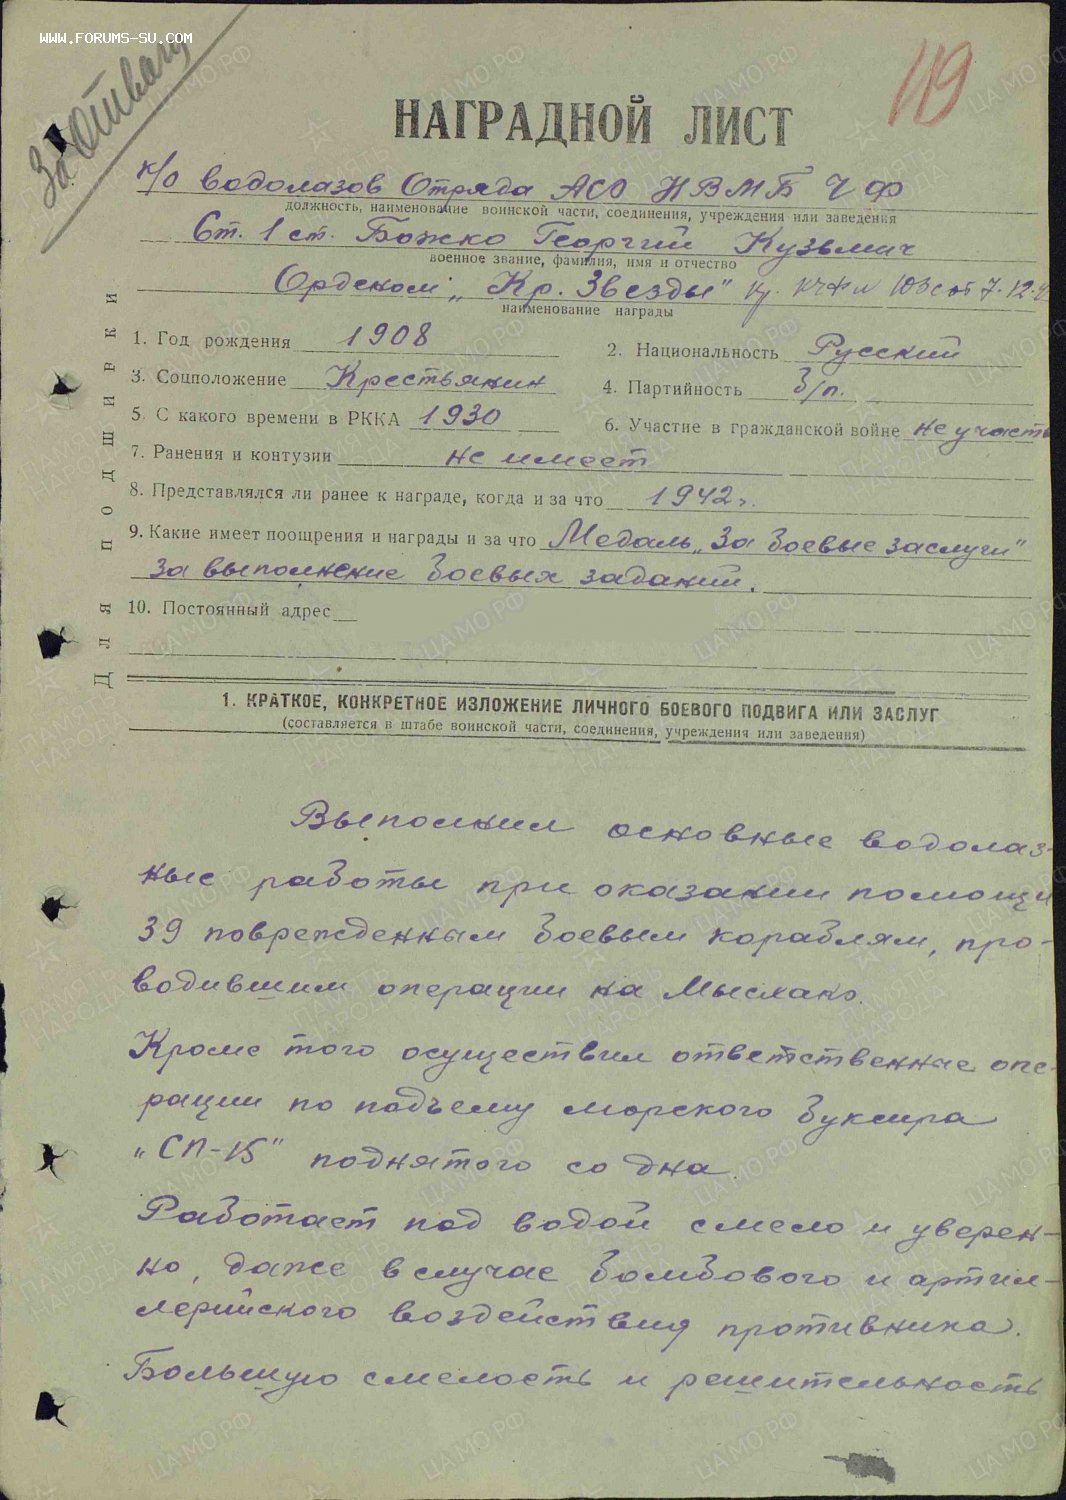 www.forums-su.com
За Отвагу
119
НАГРАДНОЙ ЛИСТ
к/о водолазов Отряда АСО НВМБ ЧФ
должность, наименование воинской части, соединения, учреждения или заведения
Ст. 1 ст. Божко Георгий Кузьмич
военное звание, фамилия, имя и отчество
Орденом „Кр. Звезды"
наименование награды
1. Год рождения 1908
2. Национальность Русский
3. Соцположение Крестьянин
4. Партийность б/п.
5. С какого времени в РККА 1930
6. Участие в гражданской войне не участв
7. Ранения и контузии не имеет
8. Представлялся ли ранее к награде, когда и за что 1942 г.
9. Какие имеет поощрения и награды и за что Медаль „За боевые заслуги"
за выполнение боевых заданий.
10. Постоянный адрес
Для подшивки
1. КРАТКОЕ, КОНКРЕТНОЕ ИЗЛОЖЕНИЕ ЛИЧНОГО БОЕВОГО ПОДВИГА ИЛИ ЗАСЛУГ
(составляется в штабе воинской части, соединения, учреждения или заведения)
Выполнил основные водолаз-
ные работы при оказании помощи
39 поврежденным боевым кораблям, про-
водившим операции на Мысхако.
Кроме того осуществил ответственные опе-
рации по подъему морского буксира
„СП-15" поднятого со дна.
Работает под водой смело и уверен-
но, даже в случае бомбового и артил-
лерийского воздействия противника.
Большую смелость и решительность